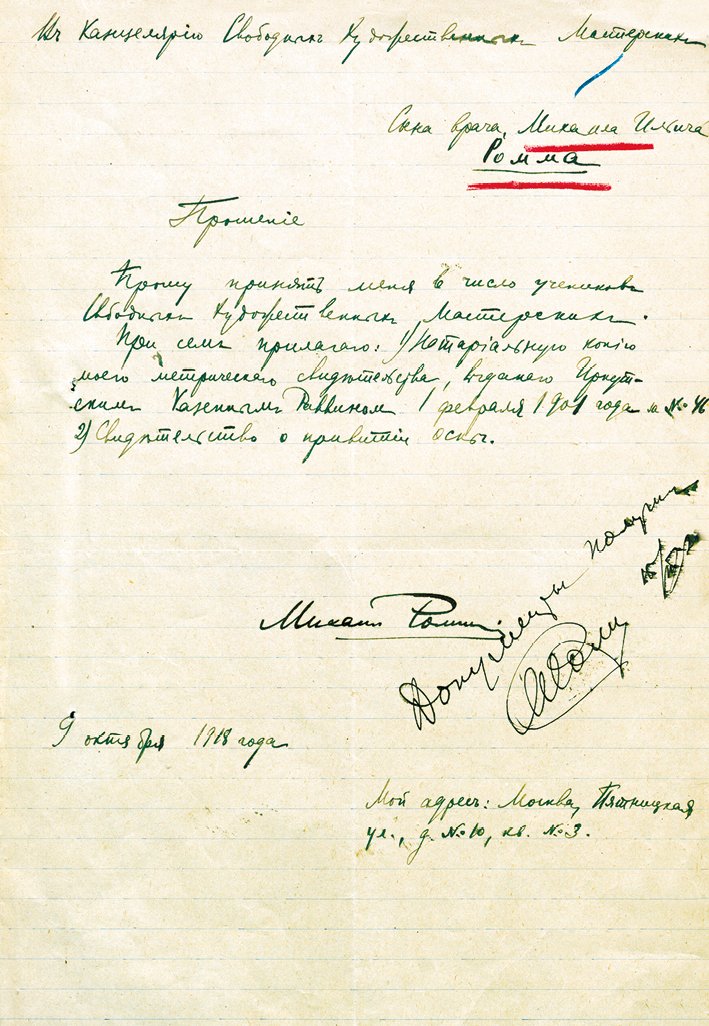 Въ Канцелярію Свободныхъ Художественныхъ Мастерскихъ
Сына врача, Михаила Ильича
Ромма
Прошеніе
Прошу принять меня в число учениковъ
Свободныхъ Художественныхъ Мастерскихъ.
При семъ прилагаю: 1) Нотаріальную копію
моего метрическаго свидѣтельства, выданаго Иркут-
скимъ Казеннымъ Раввиномъ 1 февраля 1901 года за № 46
2) Свидѣтельство о привитіи оспы.
Документы получил
МРомм
Михаил Ромм
9 октября 1918 года
Мой адресъ: Москва, Пятницкая
ул., д. № 10, кв. № 3.